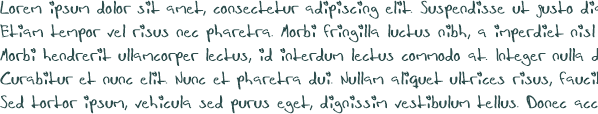 Lorem ipsum dolor sit amet, consectetur adipiscing elit. Suspendisse ut justo di
Etiam tempor vel risus nec pharetra. Morbi fringilla luctus nibh, a imperdiet nisl
Morbi hendrerit ullamcorper lectus, id interdum lectus commodo at. Integer nulla d
Curabitur et nunc elit. Nunc et pharetra dui. Nullam aliquet ultrices risus, fauci
Sed tortor ipsum, vehicula sed purus eget, dignissim vestibulum tellus. Donec acc